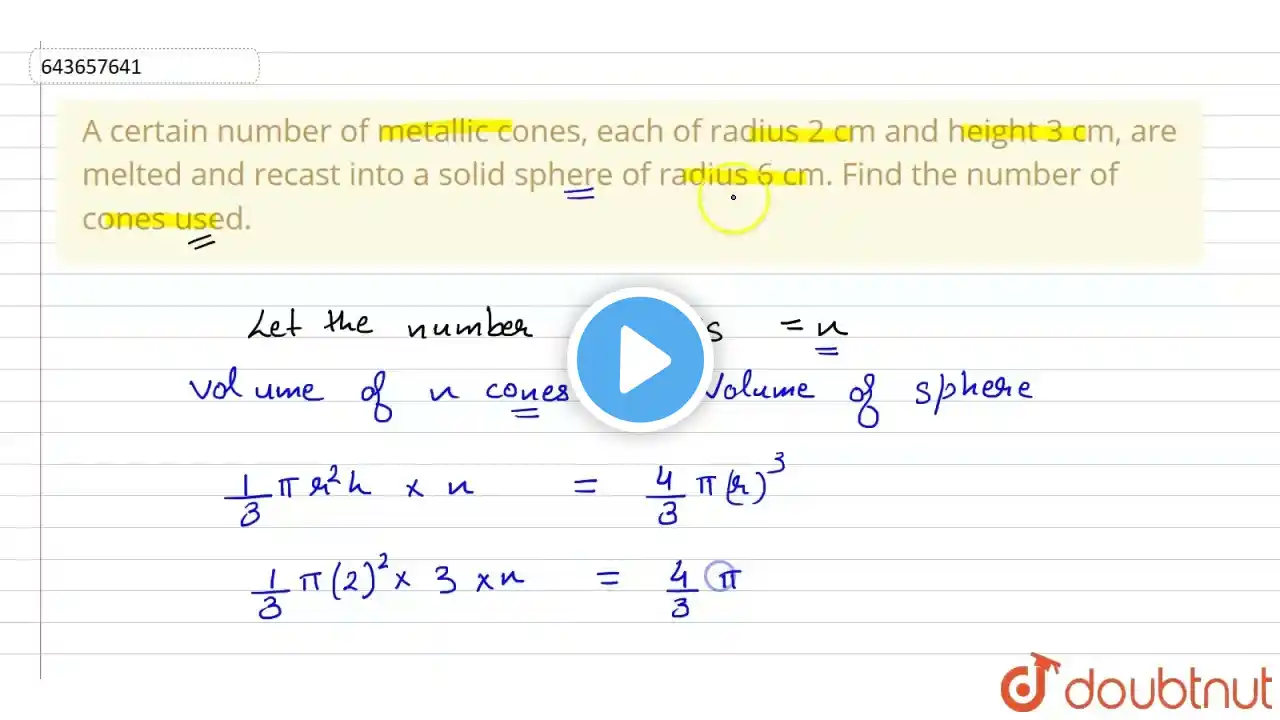 643657641
A certain number of metallic cones, each of radius 2 cm and height 3 cm, are
melted and recast into a solid sphere of radius 6 cm. Find the number of
cones used.
Let the number s = n
volume of n cones volume of sphere
1/3 π r²h × n = 4/3 π(r)³
1/3 π(2)² × 3 × n = 4/3 π
doubtnut